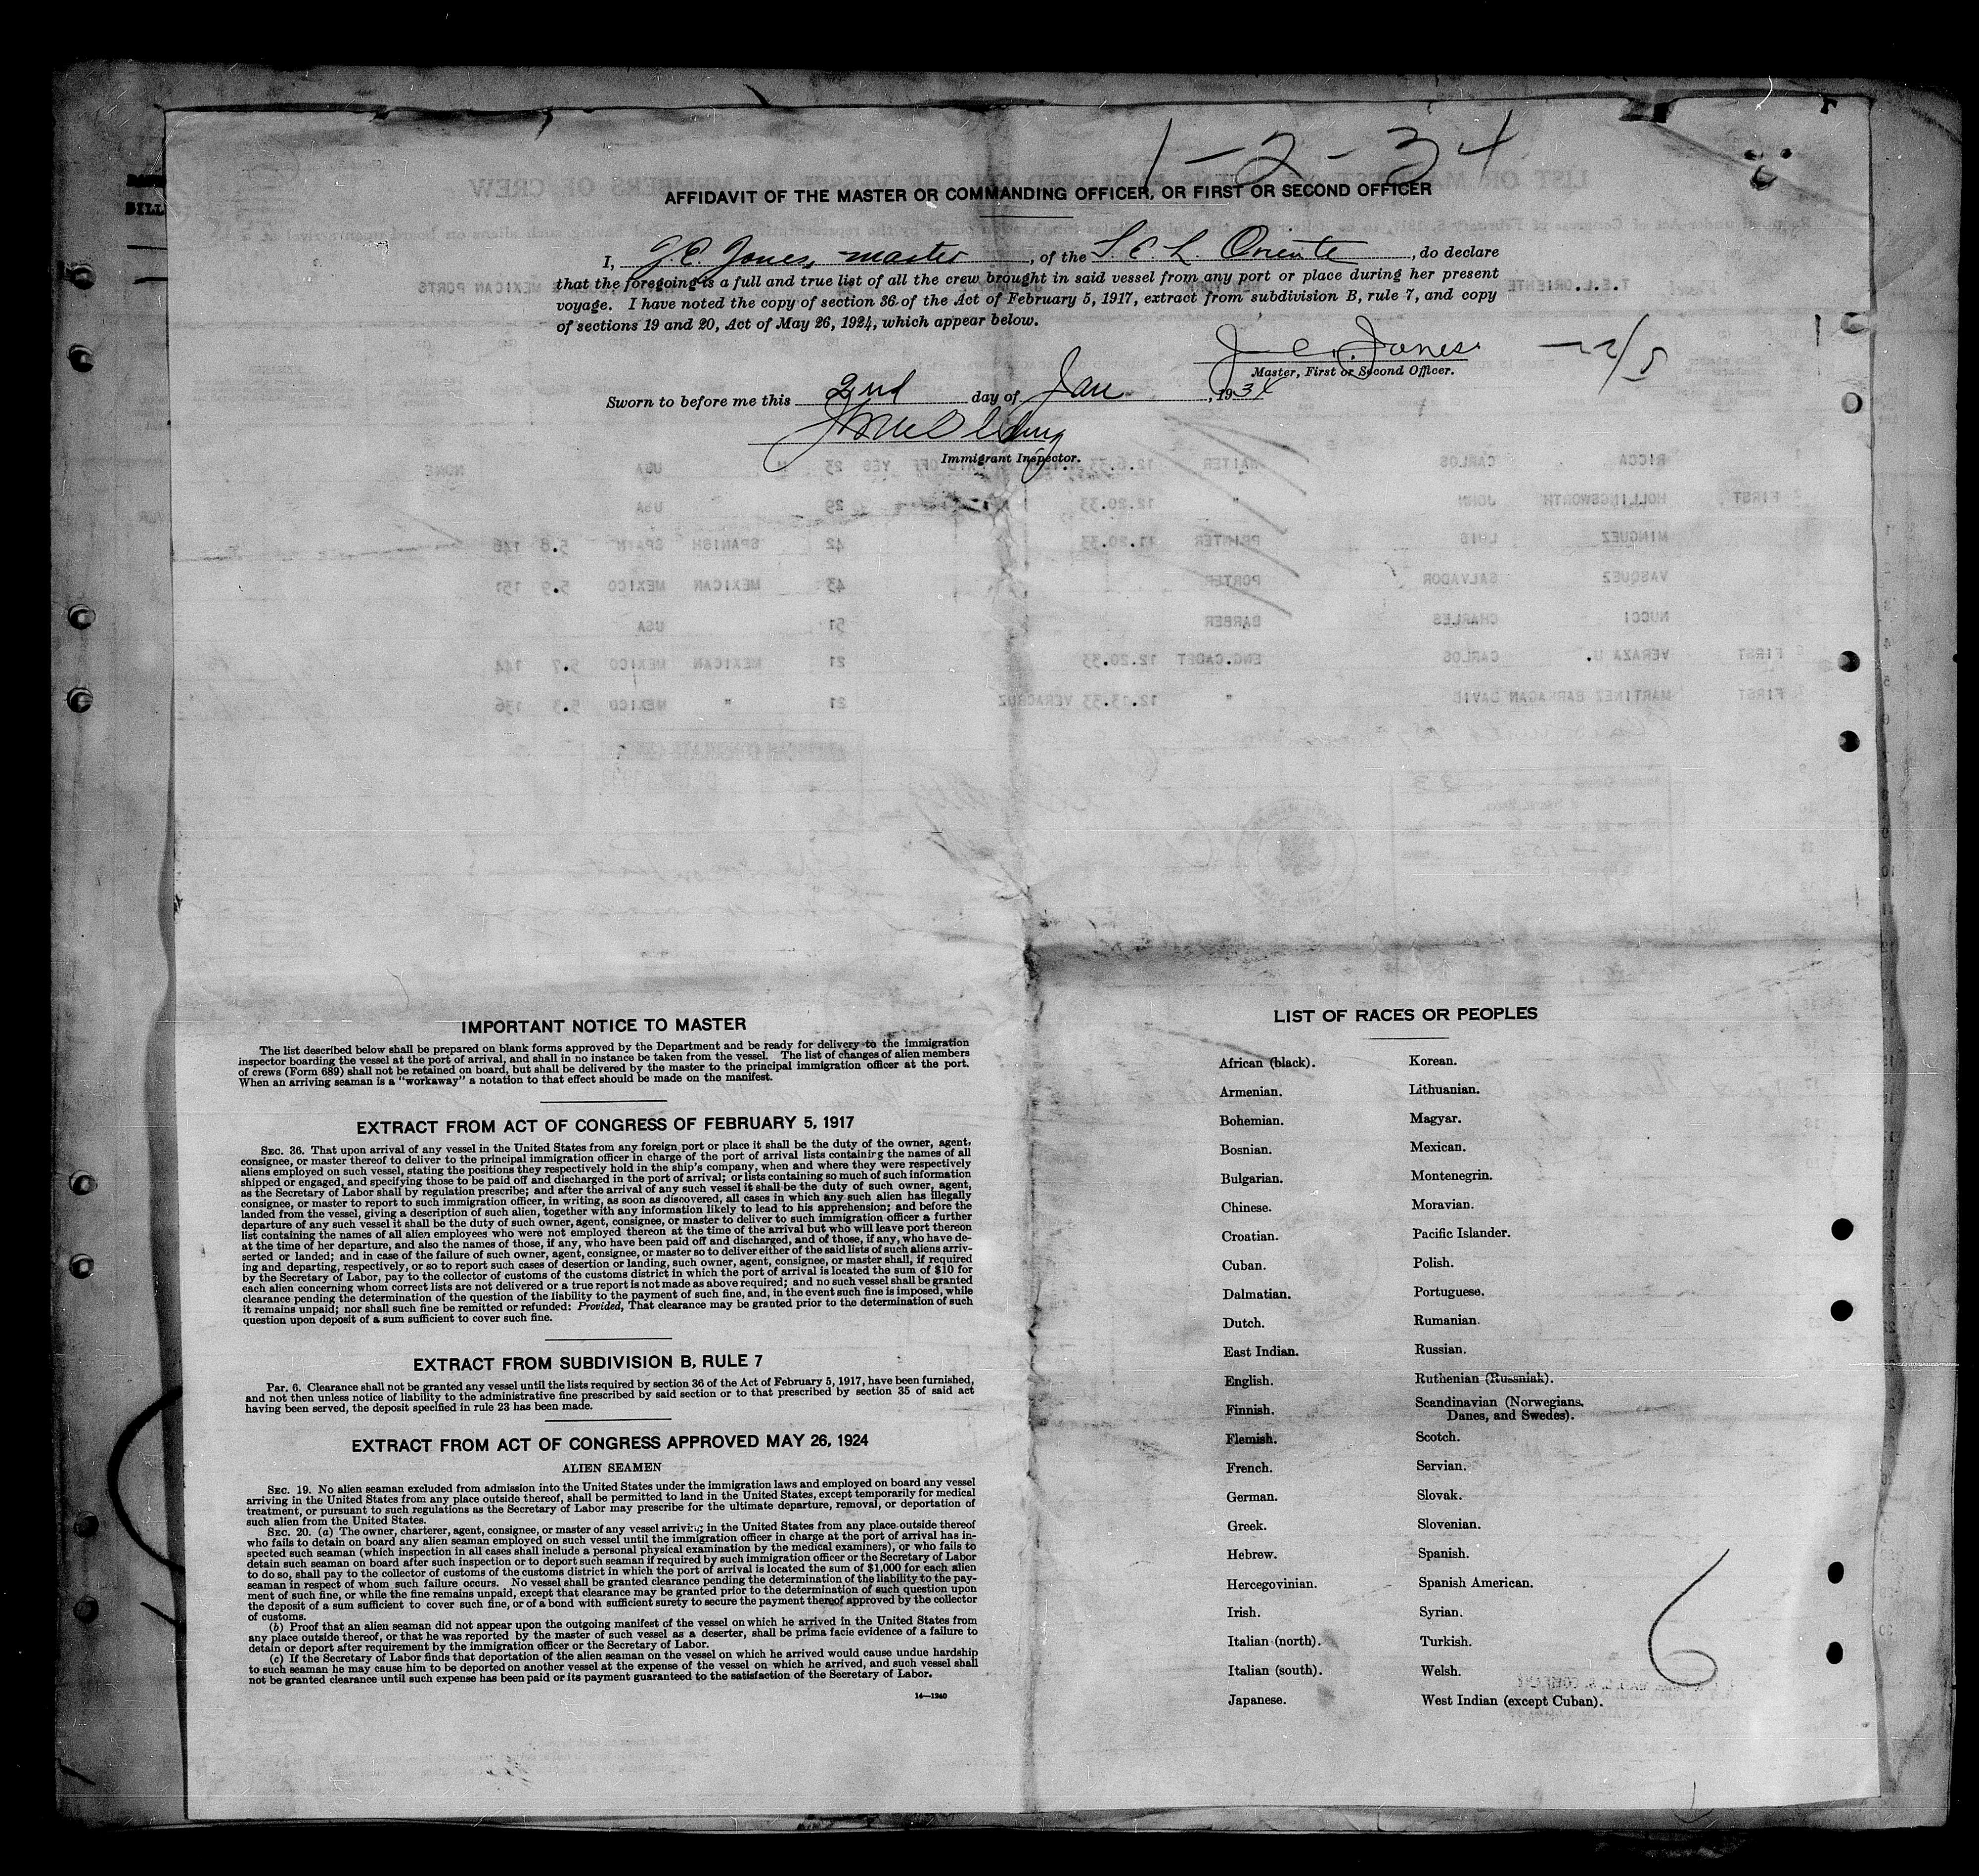 1-2-34
AFFIDAVIT OF THE MASTER OR COMMANDING OFFICER, OR FIRST OR SECOND OFFICER
I, J.E. Jones, master, of the S. E. L. Oriente, do declare
that the foregoing is a full and true list of all the crew brought in said vessel from any port or place during her present
voyage. I have noted the copy of section 36 of the Act of February 5, 1917, extract from subdivision B, rule 7, and copy
of sections 19 and 20, Act of May 26, 1924, which appear below.
Jones
Master, First or Second Officer.
Sworn to before me this 2nd day of Jan, 1934
Immigrant Inspector.
IMPORTANT NOTICE TO MASTER
The list described below shall be prepared on blank forms approved by the Department and be ready for delivery to the immigration
inspector boarding the vessel at the port of arrival, and shall in no instance be taken from the vessel. The list of changes of alien members
of crews (Form 689) shall not be retained on board, but shall be delivered by the master to the principal immigration officer at the port.
When an arriving seaman is a "workaway" a notation to that effect should be made on the manifest.
EXTRACT FROM ACT OF CONGRESS OF FEBRUARY 5, 1917
SEC. 36. That upon arrival of any vessel in the United States from any foreign port or place it shall be the duty of the owner, agent,
consignee, or master thereof to deliver to the principal immigration officer in charge of the port of arrival lists containing the names of all
aliens employed on such vessel, stating the positions they respectively hold in the ship's company, when and where they were respectively
shipped or engaged, and specifying those to be paid off and discharged in the port of arrival; or lists containing so much of such information
as the Secretary of Labor shall by regulation prescribe; and after the arrival of any such vessel it shall be the duty of such owner, agent,
consignee, or master to report to such immigration officer, in writing, as soon as discovered, all cases in which any such alien has illegally
landed from the vessel, giving a description of such alien, together with any information likely to lead to his apprehension; and before the
departure of any such vessel it shall be the duty of such owner, agent, consignee, or master to deliver to such immigration officer a further
list containing the names of all alien employees who were not employed thereon at the time of the arrival but who will leave port thereon
at the time of her departure, and also the names of those, if any, who have been paid off and discharged, and of those, if any, who have de-
serted or landed; and in case of the failure of such owner, agent, consignee, or master so to deliver either of the said lists of such aliens arriv-
ing and departing, respectively, or so to report such cases of desertion or landing, such owner, agent, consignee, or master shall, if required
by the Secretary of Labor, pay to the collector of customs of the customs district in which the port of arrival is located the sum of $10 for
each alien concerning whom correct lists are not delivered or a true report is not made as above required; and no such vessel shall be granted
clearance pending the determination of the question of the liability to the payment of such fine, and, in the event such fine is imposed, while
it remains unpaid; nor shall such fine be remitted or refunded: Provided, That clearance may be granted prior to the determination of such
question upon deposit of a sum sufficient to cover such fine.
EXTRACT FROM SUBDIVISION B, RULE 7
Par. 6. Clearance shall not be granted any vessel until the lists required by section 36 of the Act of February 5, 1917, have been furnished,
and not then unless notice of liability to the administrative fine prescribed by said section or to that prescribed by section 35 of said act
having been served, the deposit specified in rule 23 has been made.
EXTRACT FROM ACT OF CONGRESS APPROVED MAY 26, 1924
ALIEN SEAMEN
SEC. 19. No alien seaman excluded from admission into the United States under the immigration laws and employed on board any vessel
arriving in the United States from any place outside thereof, shall be permitted to land in the United States, except temporarily for medical
treatment, or pursuant to such regulations as the Secretary of Labor may prescribe for the ultimate departure, removal, or deportation of
such alien from the United States.
SEC. 20. (a) The owner, charterer, agent, consignee, or master of any vessel arriving in the United States from any place outside thereof
who fails to detain on board any alien seaman employed on such vessel until the immigration officer in charge at the port of arrival has in-
spected such seaman (which inspection in all cases shall include a personal physical examination by the medical examiners), or who fails to
detain such seaman on board after such inspection or to deport such seaman if required by such immigration officer or the Secretary of Labor
to do so, shall pay to the collector of customs of the customs district in which the port of arrival is located the sum of $1,000 for each alien
seaman in respect of whom such failure occurs. No vessel shall be granted clearance pending the determination of the liability to the pay-
ment of such fine, or while the fine remains unpaid, except that clearance may be granted prior to the determination of such question upon
the deposit of a sum sufficient to cover such fine, or of a bond with sufficient surety to secure the payment thereof approved by the collector
of customs.
(b) Proof that an alien seaman did not appear upon the outgoing manifest of the vessel on which he arrived in the United States from
any place outside thereof, or that he was reported by the master of such vessel as a deserter, shall be prima facie evidence of a failure to
detain or deport after requirement by the immigration officer or the Secretary of Labor.
(c) If the Secretary of Labor finds that deportation of the alien seaman on the vessel on which he arrived would cause undue hardship
to such seaman he may cause him to be deported on another vessel at the expense of the vessel on which he arrived, and such vessel shall
not be granted clearance until such expense has been paid or its payment guaranteed to the satisfaction of the Secretary of Labor.
14—1240
LIST OF RACES OR PEOPLES
African (black).
Armenian.
Bohemian.
Bosnian.
Bulgarian.
Chinese.
Croatian.
Cuban.
Dalmatian.
Dutch.
East Indian.
English.
Finnish.
Flemish.
French.
German.
Greek.
Hebrew.
Hercegovinian.
Irish.
Italian (north).
Italian (south).
Japanese.
Korean.
Lithuanian.
Magyar.
Mexican.
Montenegrin.
Moravian.
Pacific Islander.
Polish.
Portuguese.
Rumanian.
Russian.
Ruthenian (Russniak).
Scandinavian (Norwegians,
Danes, and Swedes).
Scotch.
Servian.
Slovak.
Slovenian.
Spanish.
Spanish American.
Syrian.
Turkish.
Welsh.
West Indian (except Cuban).
6